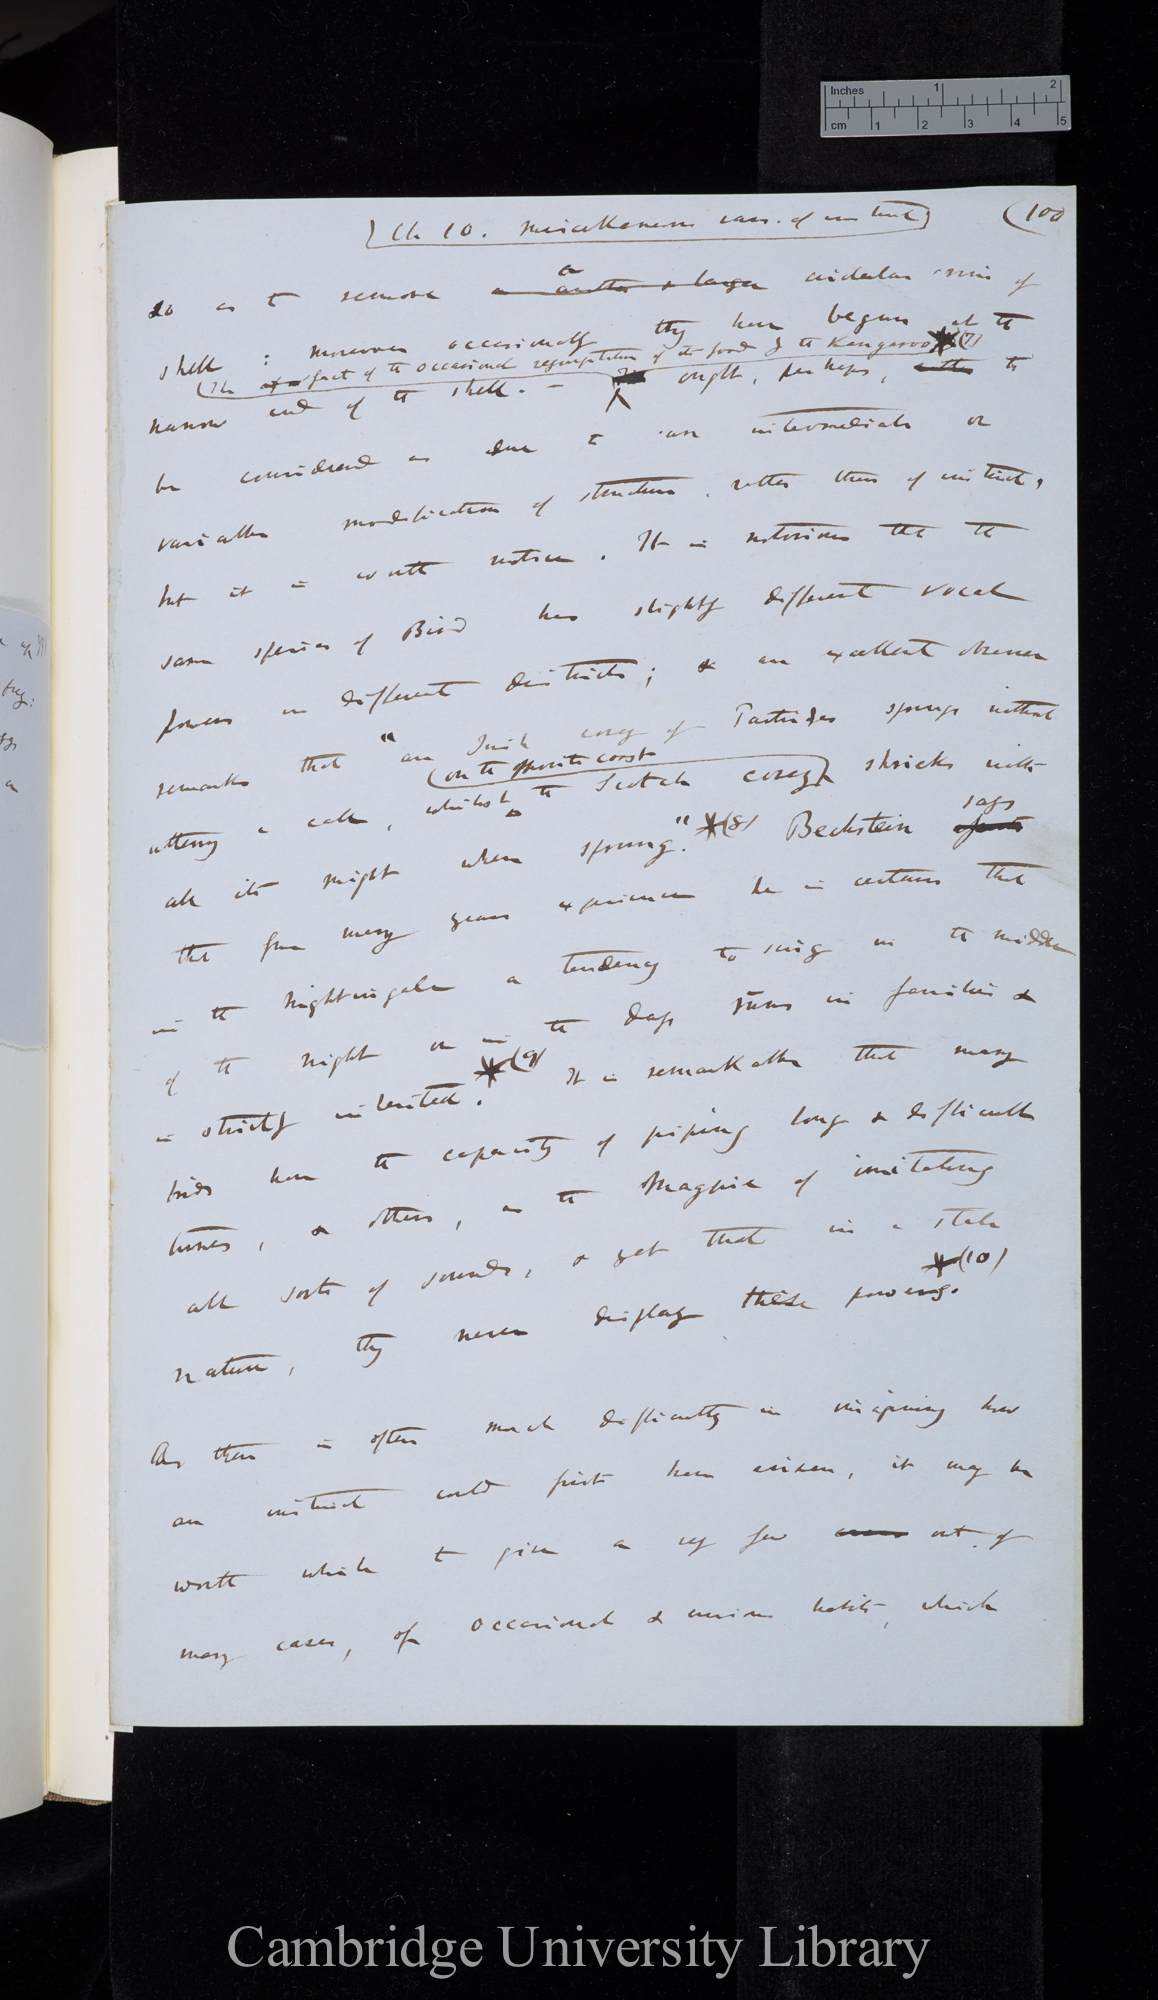 Inches 1 2
cm 1 2 3 4 5
Ch 10. Miscellaneous cases of instinct (100
so as to remove a another & larger a circular rim of
shell: moreover occasionally they have begun at the
(The fact of the occasional regurgitation of its food by the Kangaroo *(7)
narrow end of the shell.— ought, perhaps, rather to
be considered as due to an intermediate or
variable modification of structure, rather than of instinct,
but it is worth notice. It is notorious that the
same species of Bird has slightly different vocal
powers in different districts; & an excellent observer
remarks that "an Irish covey of Partridges springs without
(on the opposite coast
uttering a call, whilst the Scotch covey shrieks with
all its might when sprung."*(8) Bechstein says
that from many years experience he is certain that
in the nightingale a tendency to sing in the middle
of the night or in the day runs in families &
is strictly inherited.*(9) It is remarkable that many
birds have the capacity of piping long & difficult
tunes, & others, as the Magpie of imitating
all sorts of sounds, & yet that in a state
nature, they never display these powers.*(10)
As there is often much difficulty in imagining how
an instinct could first have arisen, it may be
worth while to give a very few out of
many cases, of occasional & curious habits, which
Cambridge University Library